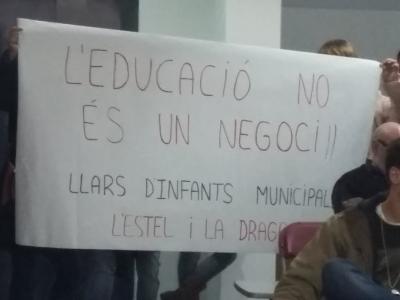 L'EDUCACIÓ NO
ÉS UN NEGOCI!!
LLARS D'INFANTS MUNICIPAL
L'ESTEL I LA